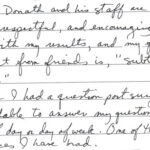 Donath and his staff are
respectful, and encouraging
with my results, and my g
t from friends is, "subt
"
I had a question post surg
lable to answer my question
f day or day of week. One of
es I have had.